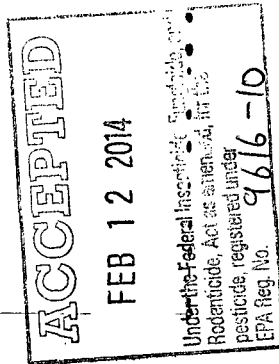 ACCEPTED
FEB 12 2014
Under the Federal Insecticide, Fungicide, and
Rodenticide, Act as amended, for the
pesticide, registered under
EPA Reg. No. 9616-10